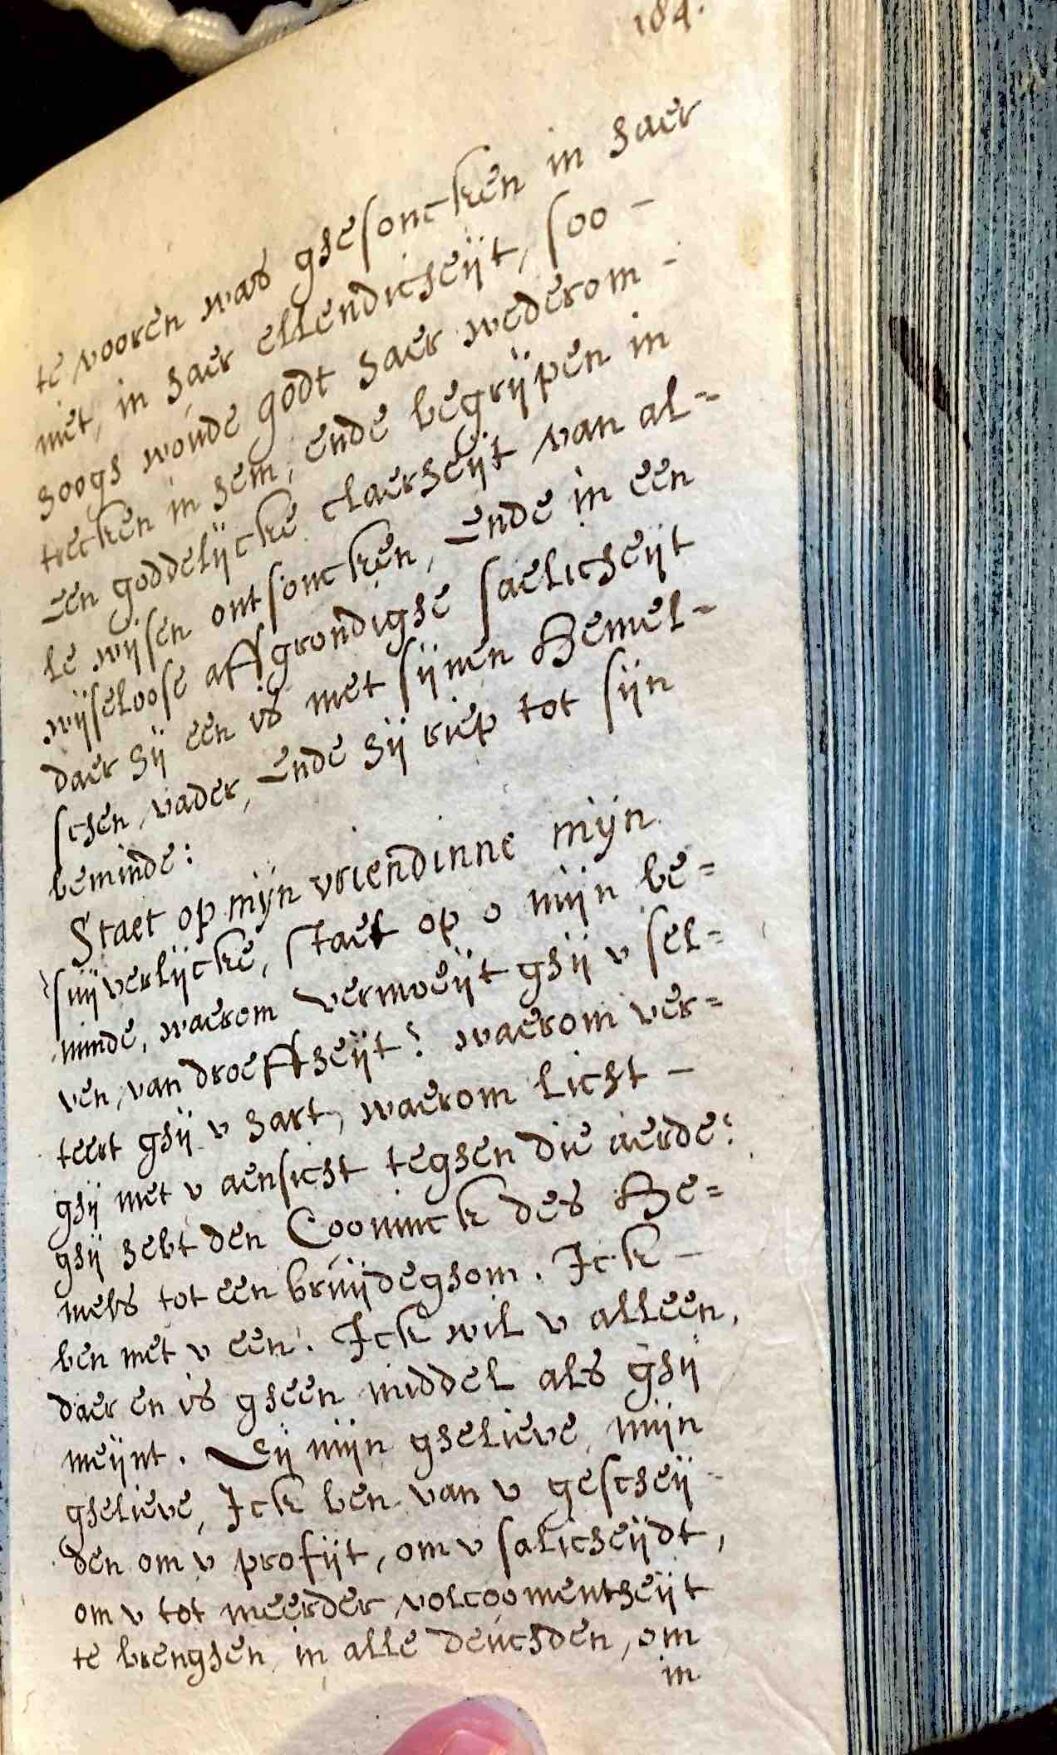 184.
te vooren was ghesoncken in haer
niet, in haer ellendicheÿt, soo -
hoogh woude godt haer wederom -
trecken in hem, ende begrÿpen in
een goddelÿcke claerheÿt van al-
le wÿsen ontsoncken, ende in een
wÿseloose affgrondighe saelicheÿt
daer hÿ een is met sÿnen Hemel-
schen vader, ende hÿ riep tot sÿn
beminde:
Staet op mÿn vriendinne mÿn
suÿverlÿcke, staet op o mÿn be=
minde, waerom vermoeÿt ghÿ v sel=
ven van droeffheÿt? waerom ver=
teert ghÿ v hart, waerom licht -
ghÿ met v aensicht teghen die aerde?
ghÿ hebt den Cooninck des He=
mels tot een bruÿdeghom. Ick -
ben met v een. Ick wil v alleen,
daer en is gheen middel als ghÿ
meÿnt. Sÿ mÿn ghelieve, mÿn
ghelieve, Ick ben van v gescheÿ-
den om v profÿt, om v salicheÿdt,
om v tot meerder volcoomentheÿt
te brenghen in alle deuchden, om
in